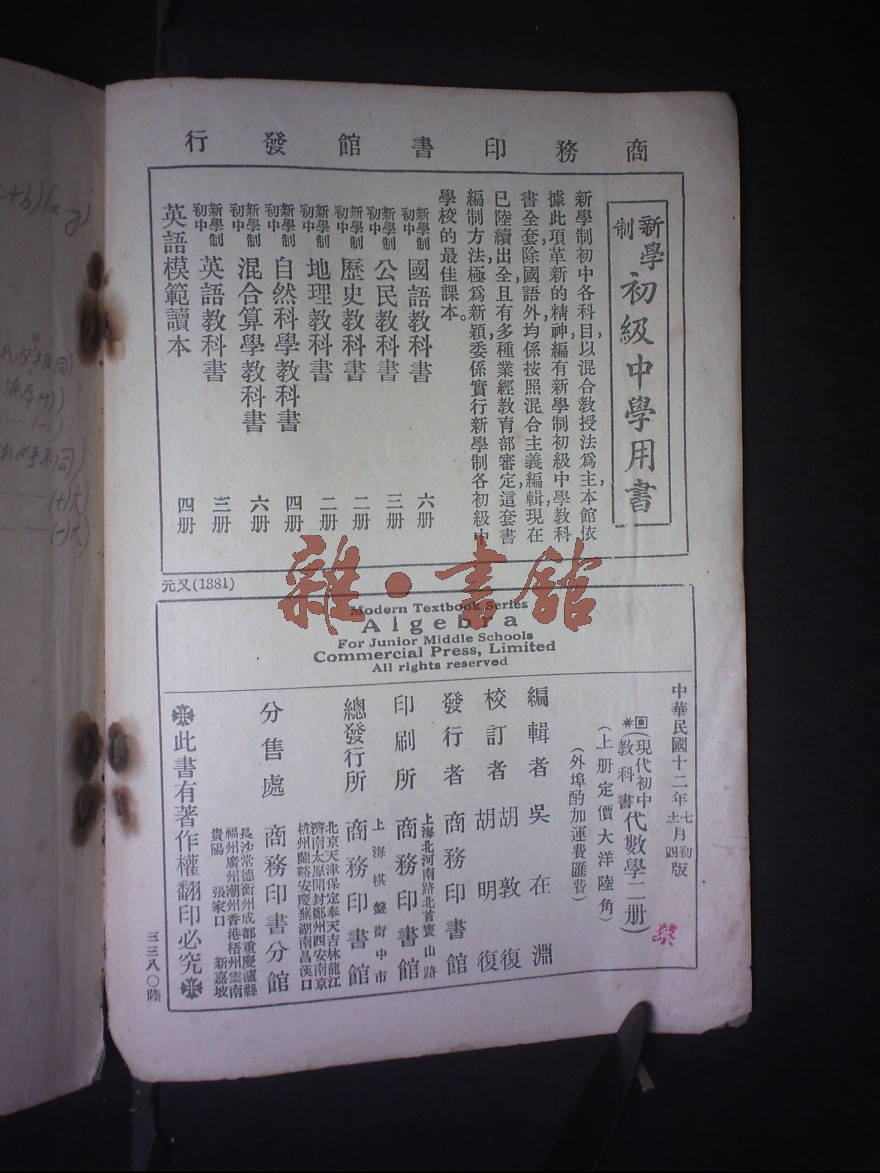 商務印書館發行
新學制初級中學用書
新學制初中各科目,以混合教授法爲主,本館依
據此項革新的精神,編有新學制初級中學教科
書全套,除國語外,均係按照混合主義編輯,現在
已陸續出全,且有多種業經教育部審定,這套書
編制方法,極爲新穎,委係實行新學制各初級中
學校的最佳課本。
新學制初中 國語教科書 六册
新學制初中 公民教科書 三册
新學制初中 歷史教科書 二册
新學制初中 地理教科書 二册
新學制初中 自然科學教科書 四册
新學制初中 混合算學教科書 六册
新學制初中 英語教科書 三册
英語模範讀本 四册
元又(1381)
雜·書館
Modern Textbook Series
Algebra
For Junior Middle Schools
Commercial Press, Limited
All rights reserved
中華民國十二年七月初版
十二月四版
(現代初中教科書 代數學二册)
(上册定價大洋陸角)
(外埠酌加運費匯費)
編輯者 吳在淵
校訂者 胡敦復
胡明復
發行者 商務印書館
上海北河南路北首寶山路
印刷所 商務印書館
上海棋盤街中市
總發行所 商務印書館
北京天津保定奉天吉林龍江
濟南太原開封鄭州西安南京
杭州蘭谿安慶蕪湖南昌漢口
分售處 商務印書分館
長沙常德衡州成都重慶瀘縣
福州廣州潮州香港梧州雲南
貴陽 張家口 新嘉坡
此書有著作權翻印必究
三三八〇陸